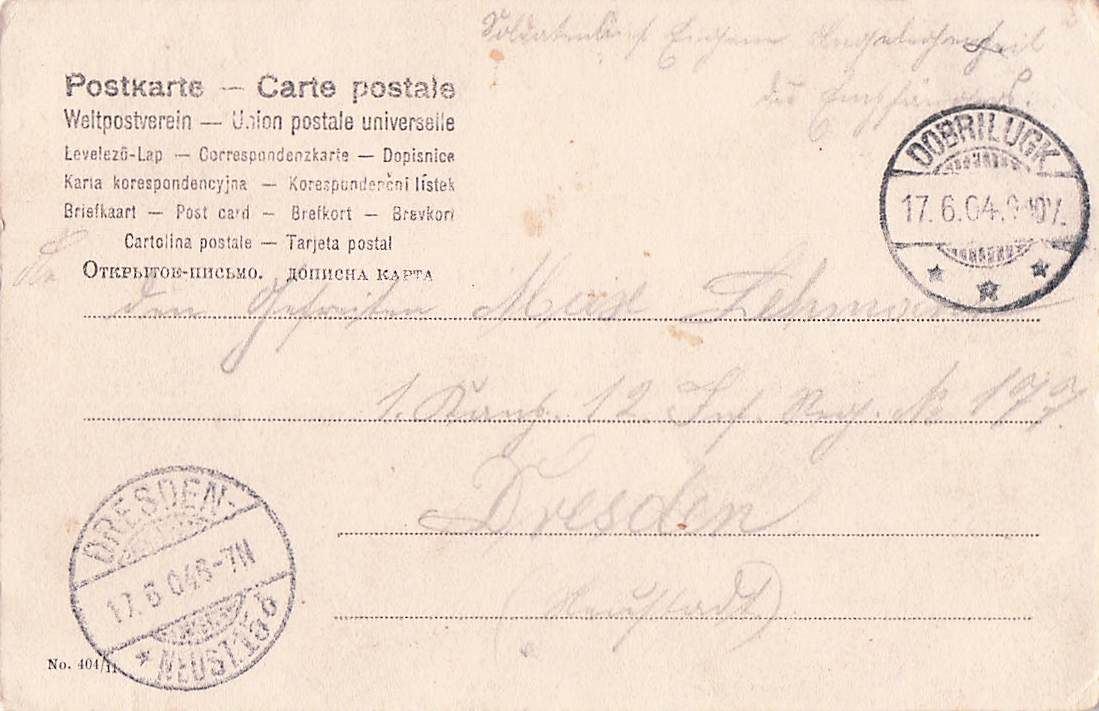 Soldatenbrief Eigene Angelegenheit
des Empfängers.
Postkarte — Carte postale
Weltpostverein — Union postale universelle
Levelező-Lap — Correspondenzkarte — Dopisnice
Karta korespondencyjna — Korespondenční lístek
Briefkaart — Post card — Brefkort — Brevkort
Cartolina postale — Tarjeta postal
Открытое-письмо. дописна карта
DOBRILUGK
17. 6. 04. 9-10V.
An
den Gefreiten Max Lehmann
1. Komp. 12. Inf. Reg. № 177
Dresden
(Neustadt)
DRESDEN-
17. 6 04 6-7N
NEUST.
No. 404/11